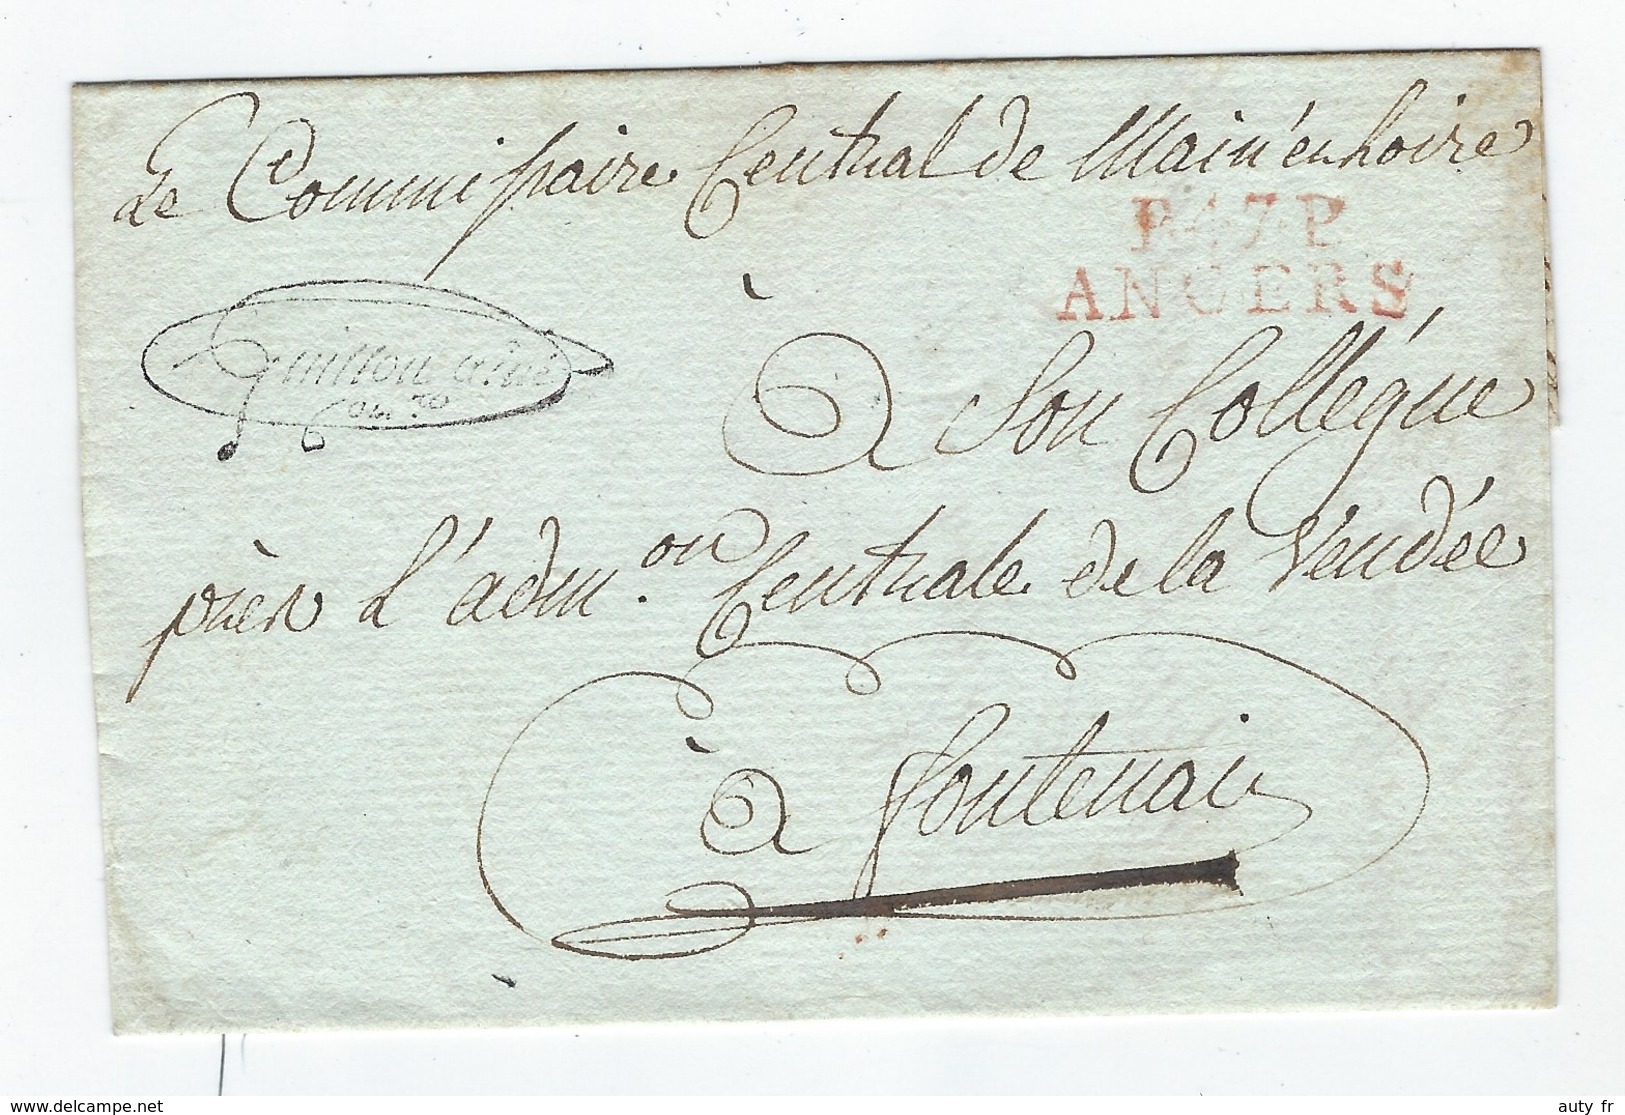 Le Commissaire Central de Main'enLoire
P.47.P
ANGERS
Quillon aîné
à Son Collégue
près L'adm.on Centrale de la Vendée
à fontenai
www.delcampe.net
auty fr